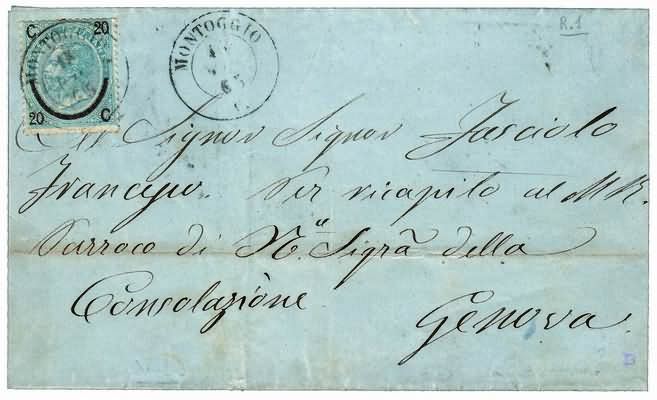 R.1
C 20
20 C
MONTOGGIO
MONTOGGIO
65
Al Signor Signor Fasciolo
Francesco. Per ricapito al M R.
Parroco di N.a Sigrã della
Consolazione
Genova.